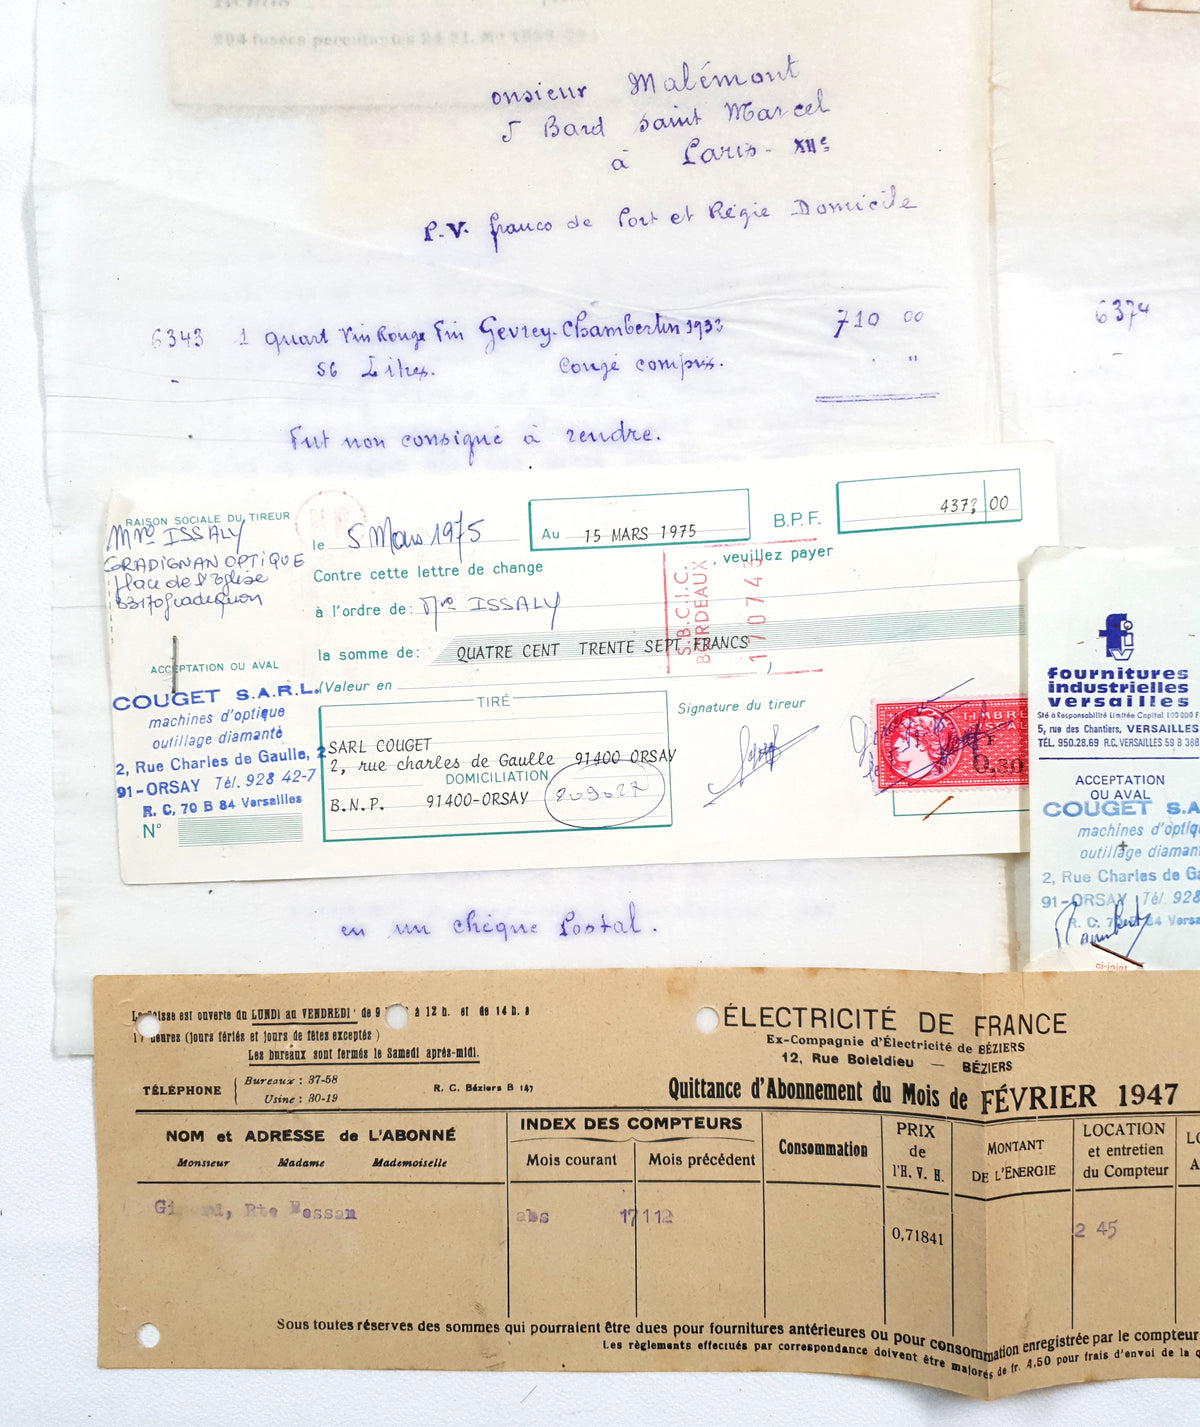 204 fusées percutantes 24
onsieur Malémont
5 Bard saint Marcel
à Paris - XIIe
P.V. franco de Port et Régie Domicile
6343 1 quart Vin Rouge Fin Gevrey-Chambertin 1933 710 00
56 Litres. Congé compris. "
Fut non consigné à rendre.
6374
RAISON SOCIALE DU TIREUR
ISSALY
GRADIGNAN OPTIQUE
Place de l'Eglise
33170 Gradignan
le 5 Mars 1975
Au 15 MARS 1975
B.P.F.
437, 00
Contre cette lettre de change
, veuillez payer
à l'ordre de: ISSALY
la somme de: QUATRE CENT TRENTE SEPT FRANCS
S.B.C.I.C.
BORDEAUX
170743
ACCEPTATION OU AVAL
COUGET S.A.R.L.
machines d'optique
outillage diamanté
2, Rue Charles de Gaulle, 2
91-ORSAY Tél. 928 42-7
R. C. 70 B 84 Versailles
N°
(Valeur en
TIRÉ
SARL COUGET
2, rue charles de Gaulle 91400 ORSAY
DOMICILIATION
B.N.P. 91400-ORSAY 209027
Signature du tireur
TIMBRE
FISCAL
0,30
fournitures
industrielles
versailles
Sté à Responsabilité Limitée Capital 100 000 F
5, rue des Chantiers, VERSAILLES
TÉL. 950.28.69 R.C. VERSAILLES 59 B 388
ACCEPTATION
OU AVAL
COUGET S.A
machines d'optiq
outillage diaman
2, Rue Charles de Ga
91-ORSAY Tél. 928
R. C. 70 B 84 Versa
ci-joint
en un chèque Postal.
La Caisse est ouverte du LUNDI au VENDREDI de 9 à 12 h. et de 14 h. à
17 heures (jours fériés et jours de fêtes exceptés)
Les bureaux sont fermés le Samedi après-midi.
TÉLÉPHONE
Bureaux : 37-58
Usine : 30-19
R. C. Béziers B 147
ÉLECTRICITÉ DE FRANCE
Ex-Compagnie d'Électricité de BÉZIERS
12, Rue Boieldieu — BÉZIERS
Quittance d'Abonnement du Mois de FÉVRIER 1947
NOM et ADRESSE de L'ABONNÉ
Monsieur Madame Mademoiselle
INDEX DES COMPTEURS
Mois courant Mois précédent
Consommation
PRIX
de
l'H. V. H.
MONTANT
DE L'ÉNERGIE
LOCATION
et entretien
du Compteur
LO
A
Rte Bessan
abs 17112
0,71841
2 45
Sous toutes réserves des sommes qui pourraient être dues pour fournitures antérieures ou pour consommation enregistrée par le compteur
Les règlements effectués par correspondance doivent être majorés de fr. 4.50 pour frais d'envoi de la q